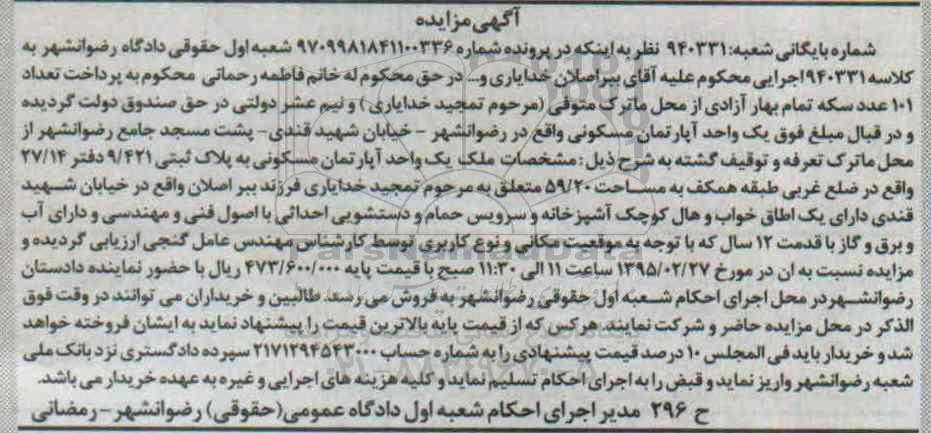 آگهی مزایده
شماره بایگانی شعبه: ۹۴۰۳۳۱ نظر به اینکه در پرونده شماره ۹۷۰۹۹۸۱۸۴۱۱۰۰۳۳۶ شعبه اول حقوقی دادگاه رضوانشهر به
کلاسه ۹۴۰۳۳۱ اجرایی محکوم علیه آقای ببراصلان خدایاری و... در حق محکوم له خانم فاطمه رحمانی محکوم به پرداخت تعداد
۱۰۱ عدد سکه تمام بهار آزادی از محل ماترک متوفی (مرحوم تمجید خدایاری) و نیم عشر دولتی در حق صندوق دولت گردیده
و در قبال مبلغ فوق یک واحد آپارتمان مسکونی واقع در رضوانشهر - خیابان شهید قندی- پشت مسجد جامع رضوانشهر از
محل ماترک تعرفه و توقیف گشته به شرح ذیل: مشخصات ملک یک واحد آپارتمان مسکونی به پلاک ثبتی ۹/۴۲۱ دفتر ۲۷/۱۴
واقع در ضلع غربی طبقه همکف به مساحت ۵۹/۲۰ متعلق به مرحوم تمجید خدایاری فرزند ببر اصلان واقع در خیابان شهید
قندی دارای یک اطاق خواب و هال کوچک آشپزخانه و سرویس حمام و دستشویی احداثی با اصول فنی و مهندسی و دارای آب
و برق و گاز با قدمت ۱۲ سال که با توجه به موقعیت مکانی و نوع کاربری توسط کارشناس مهندس عامل گنجی ارزیابی گردیده و
مزایده نسبت به ان در مورخ ۱۳۹۵/۰۲/۲۷ ساعت ۱۱ الی ۱۱:۳۰ صبح با قیمت پایه ۴۷۳/۶۰۰/۰۰۰ ریال با حضور نماینده دادستان
رضوانشهر در محل اجرای احکام شعبه اول حقوقی رضوانشهر به فروش می رسد. طالبین و خریداران می توانند در وقت فوق
الذکر در محل مزایده حاضر و شرکت نمایند. هرکس که از قیمت پایه بالاترین قیمت را پیشنهاد نماید به ایشان فروخته خواهد
شد و خریدار باید فی المجلس ۱۰ درصد قیمت پیشنهادی را به شماره حساب ۲۱۷۱۲۹۴۵۴۳۰۰۰ سپرده دادگستری نزد بانک ملی
شعبه رضوانشهر واریز نماید و قبض را به اجرای احکام تسلیم نماید و کلیه هزینه های اجرایی و غیره به عهده خریدار می باشد.
ح ۲۹۶ مدیر اجرای احکام شعبه اول دادگاه عمومی (حقوقی) رضوانشهر - رمضانی
ParsNamadData